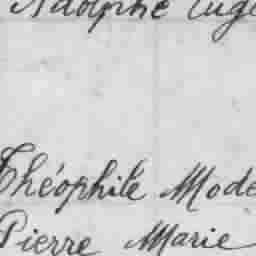 Adolphe Eugè
Théophile Mode
Pierre Marie